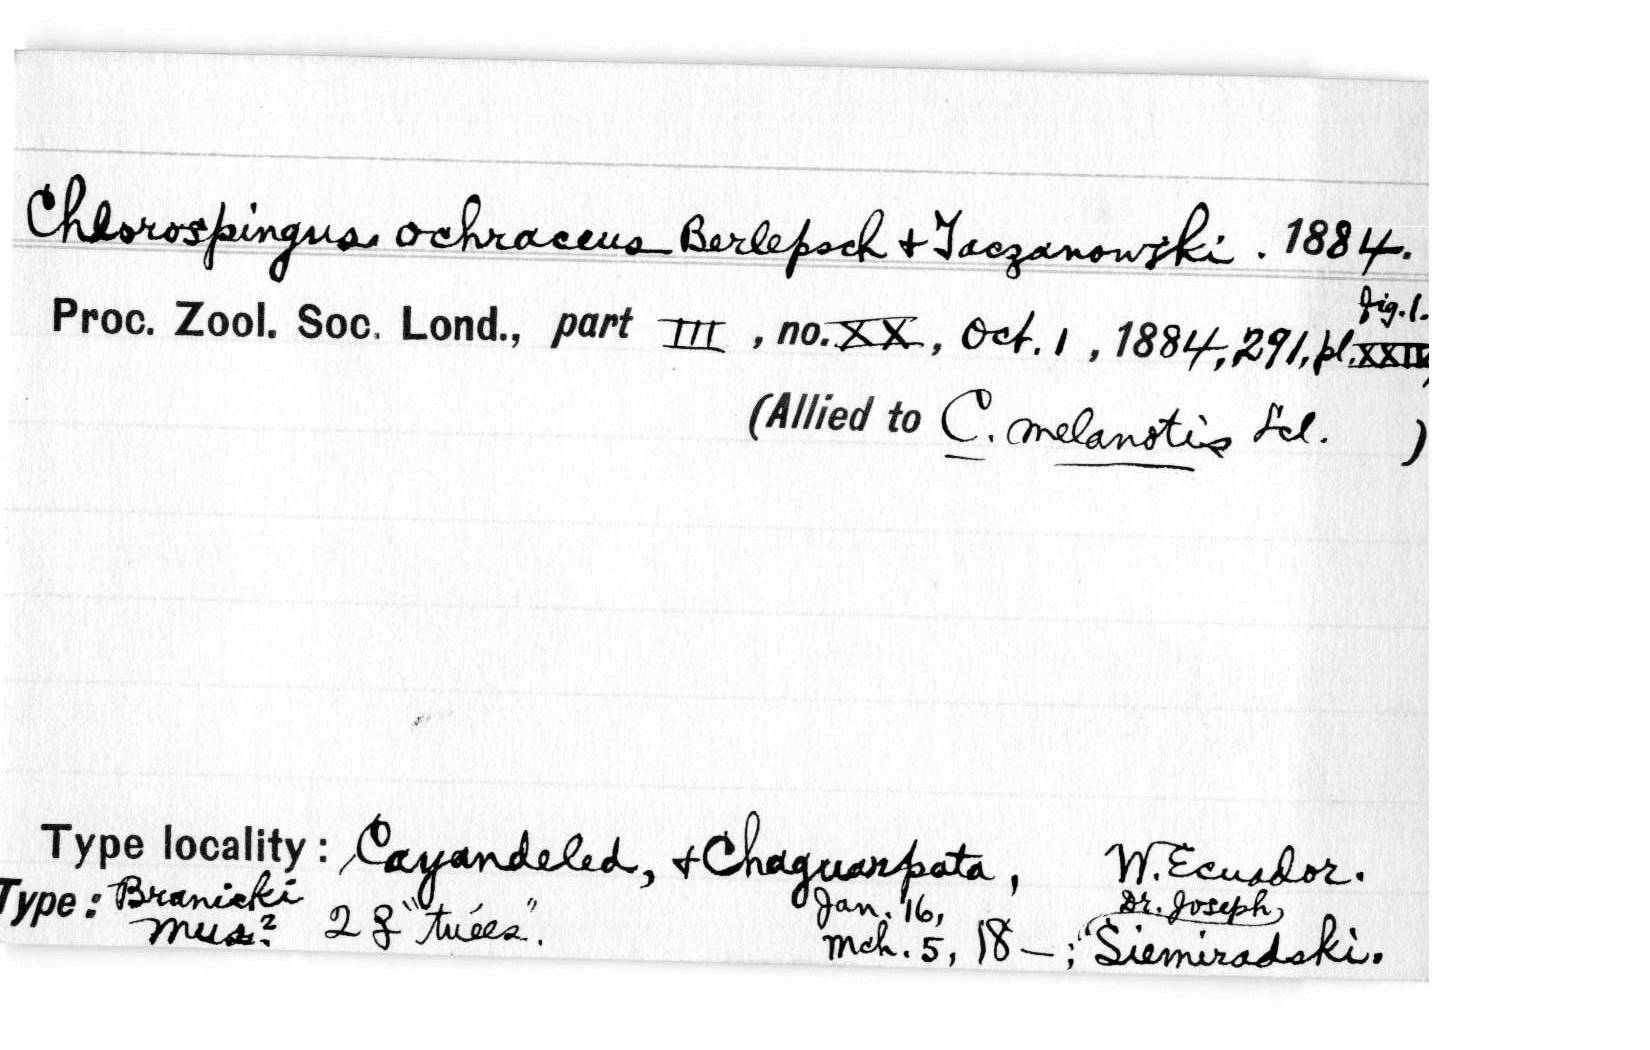 Chlorospingus ochraceus Berlepsch & Taczanowski. 1884.
Proc. Zool. Soc. Lond., part III, no. XX, Oct. 1, 1884, 291, pl. XXIV, fig. 1.
(Allied to C. melanotis Scl. )
Type locality: Cayandeled, & Chaguarpata, W. Ecuador.
Type: Branicki Jan. 16, Dr. Joseph
Mus.? 2 "tuées". Mch. 5, 18—; "Siemiradski.